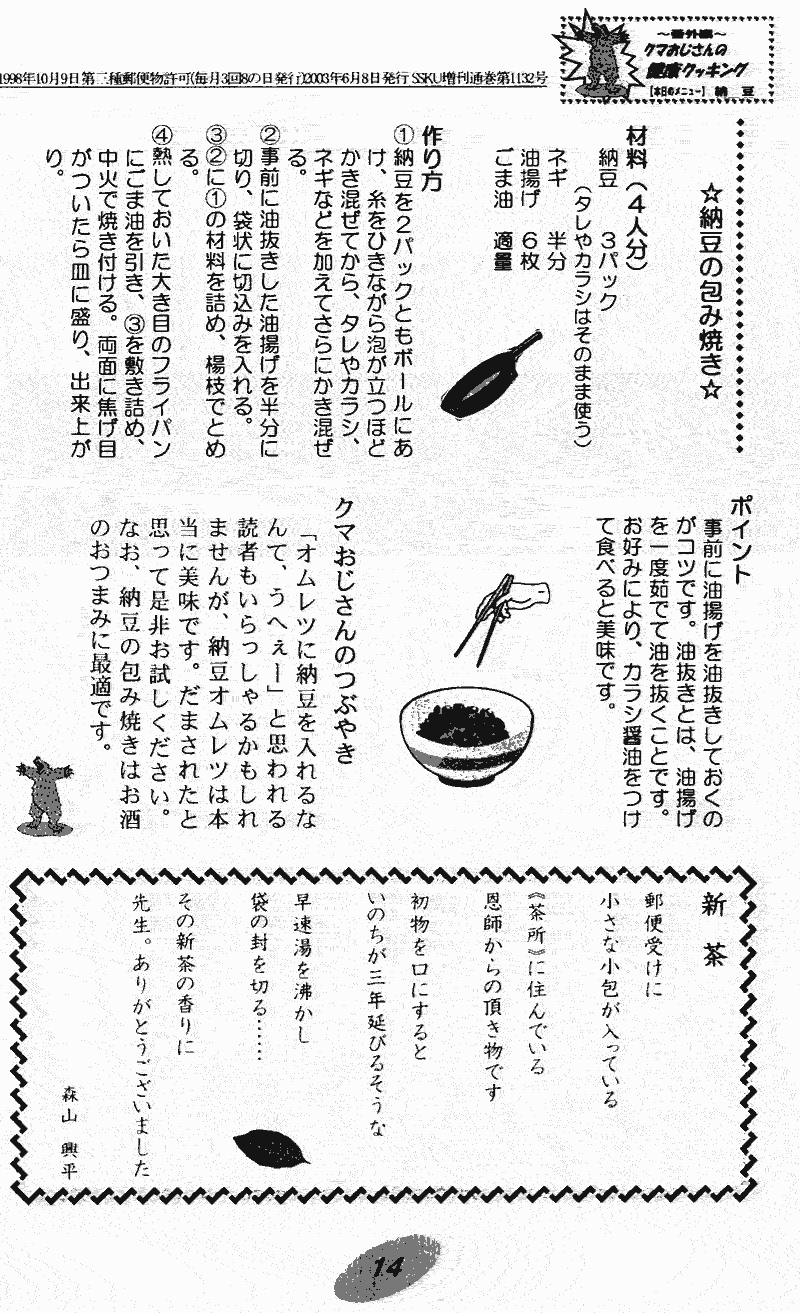 1998年10月9日第三種郵便物許可(毎月3回8の日発行)2003年6月8日発行 SSKU増刊通巻第1132号
～番外編～
クマおじさんの
健康クッキング
【本日のメニュー】 納 豆
☆納豆の包み焼き☆
材料（４人分）
納豆　３パック
（タレやカラシはそのまま使う）
ネギ　半分
油揚げ　６枚
ごま油　適量
作り方
①納豆を２パックともボールにあ
け、糸をひきながら泡が立つほど
かき混ぜてから、タレやカラシ、
ネギなどを加えてさらにかき混ぜ
る。
②事前に油抜きした油揚げを半分に
切り、袋状に切込みを入れる。
③②に①の材料を詰め、楊枝でとめ
る。
④熱しておいた大き目のフライパン
にごま油を引き、③を敷き詰め、
中火で焼き付ける。両面に焦げ目
がついたら皿に盛り、出来上が
り。
ポイント
事前に油揚げを油抜きしておくの
がコツです。油抜きとは、油揚げ
を一度茹でて油を抜くことです。
お好みにより、カラシ醤油をつけ
て食べると美味です。
クマおじさんのつぶやき
「オムレツに納豆を入れるな
んて、うへぇー」と思われる
読者もいらっしゃるかもしれ
ませんが、納豆オムレツは本
当に美味です。だまされたと
思って是非お試しください。
なお、納豆の包み焼きはお酒
のおつまみに最適です。
新　茶
郵便受けに
小さな小包が入っている
《茶所》に住んでいる
恩師からの頂き物です
初物を口にすると
いのちが三年延びるそうな
早速湯を沸かし
袋の封を切る……
その新茶の香りに
先生。ありがとうございました
森山　興平
14